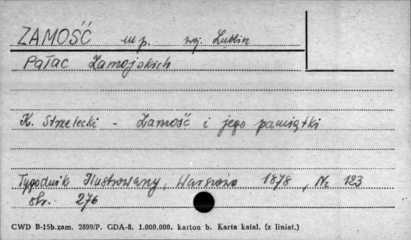 ZAMOŚĆ m.p. woj. Lublin
Pałac Zamojskich
K. Strzelecki - Zamość i jego pamiątki
Tygodnik Ilustrowany, Warszawa 1878, Nr 123
str. 276
CWD B-15b. zam. 2899/P. GDA-8. 1.000.000. karton b. Karta katal. (z liniat.)